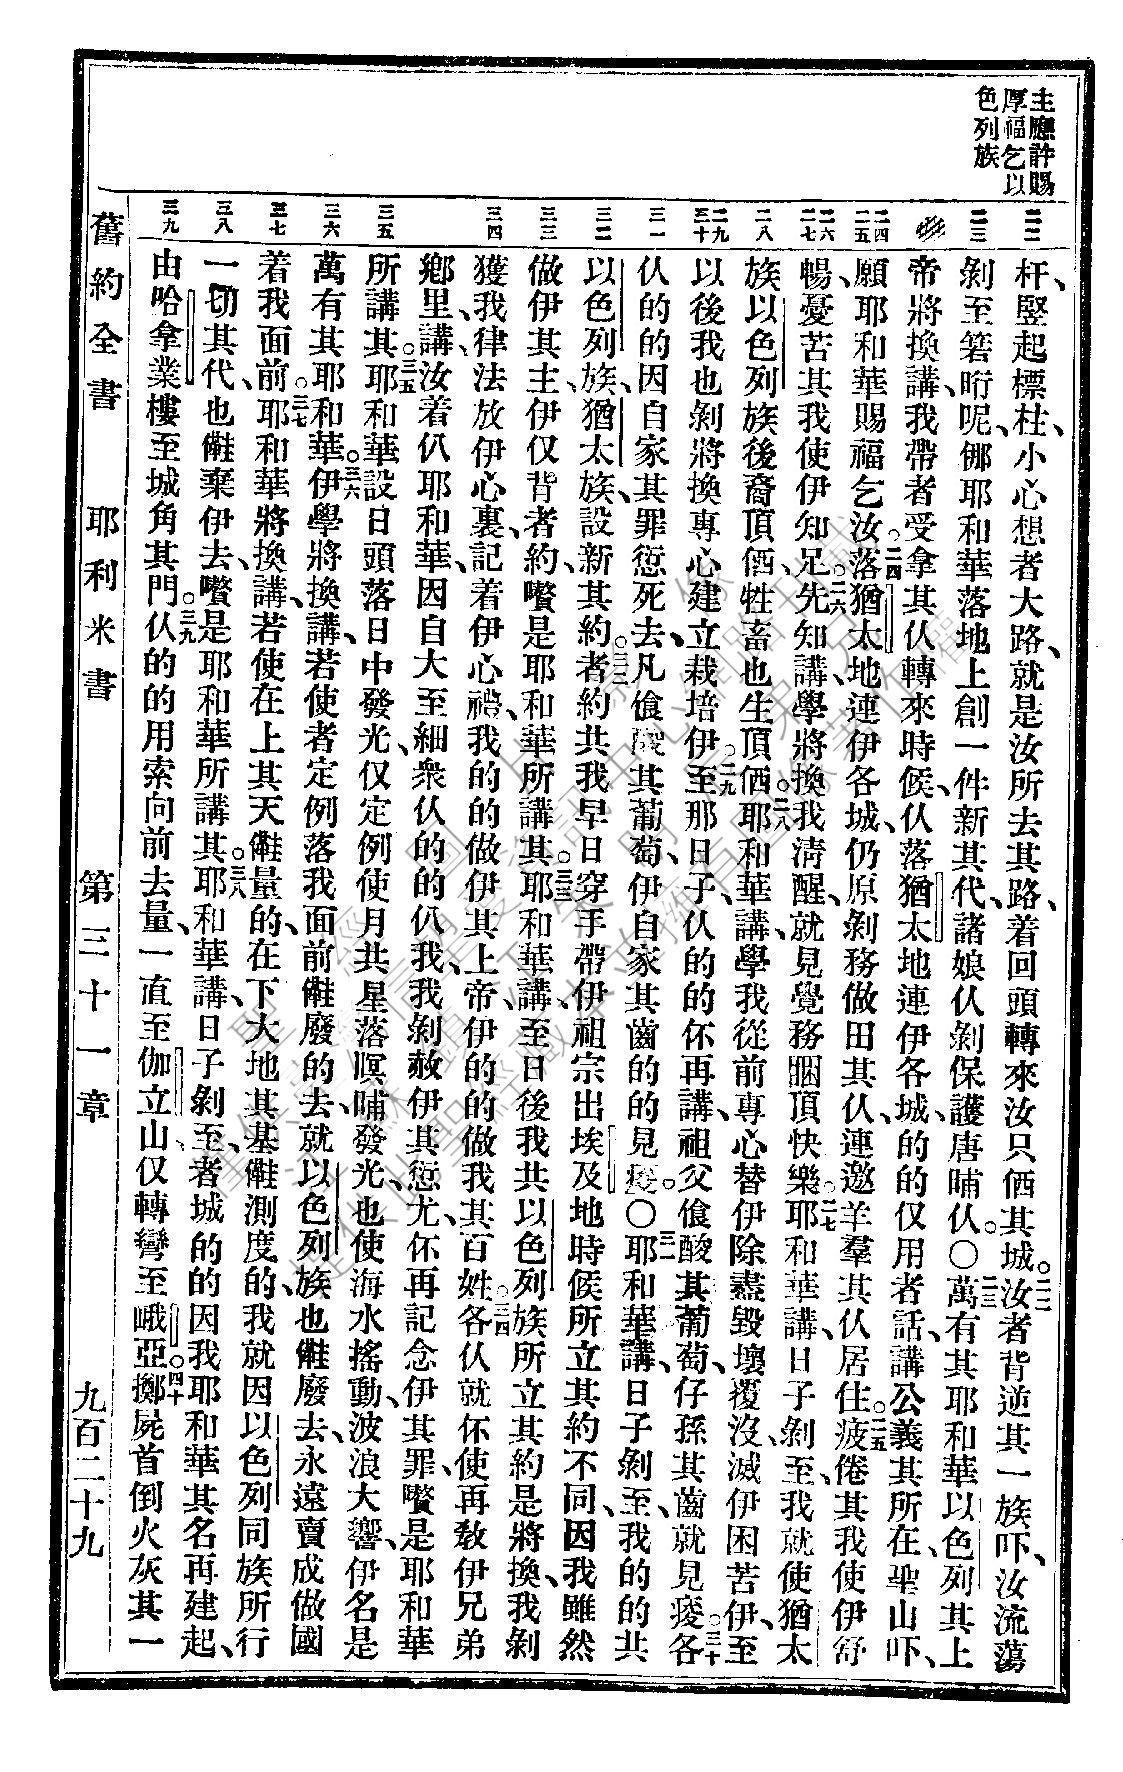 主應許賜
厚福乞以
色列族
二二
二三
二四
二五
二六
二七
二八
二九
三十
三一
三二
三三
三四
三五
三六
三七
三八
三九
杆、竪起標柱、小心想者大路、就是汝所去其路、着回頭轉來汝只㑚其城。二二汝者背逆其一族吓、汝流蕩
剝至䂬昕呢、㑚耶和華落地上創一件新其代、諸娘仈剝保護唐晡仈。〇二三萬有其耶和華以色列其上
帝將換講、我帶者受拿其仈轉來時候、仈落猶太地連伊各城、的的仅用者話、講公義其所在、聖山吓、
願耶和華賜福乞汝。二四落猶太地連伊各城、仍原剝務做田其仈、連邀羊羣其仈居住。二五疲倦其我使伊舒
暢、憂苦其我使伊知足。二六先知講、學將換我淸醒、就見覺務䐃頂快樂。二七耶和華講、日子剝至、我就使猶太
族以色列族後裔頂㑚、牲畜也生頂㑚。二八耶和華講、學我從前專心替伊除盡毀壞覆沒、滅伊困苦伊、至
以後我也剝將換專心建立栽培伊。二九至那日子、仈的的伓再講、祖父飡酸其葡萄、仔孫其齒就見痠。三十各
仈的的因自家其罪愆死去、凡飡酸其葡萄、伊自家其齒的的見痠。〇三一耶和華講、日子剝至、我的的共
以色列族、猶太族、設新其約。三二者約共我早日穿手帶伊祖宗出埃及地時候所立其約不同、因我雖然
做伊其主、伊仅背者約、嚽是耶和華所講其。三三耶和華講、至日後我共以色列族所立其約是將換、我剝
獲我律法放伊心裏、記着伊心裡、我的的做伊其上帝、伊的的做我其百姓。三四各仈就伓使再敎伊兄弟
鄉里、講、汝着仈耶和華、因自大至細、衆仈的的仈我、我剝赦伊其愆尤、伓再記念伊其罪、嚽是耶和華
所講其。三五耶和華設日頭落日中發光、仅定例使月共星落暝晡發光、也使海水搖動、波浪大響、伊名是
萬有其耶和華。三六伊學將換講、若使者定例落我面前𣍐廢的去、就以色列族也𣍐廢去、永遠賣成做國
着我面前。三七耶和華將換講、若使在上其天𣍐量的、在下大地其基𣍐測度的、我就因以色列同族所行
一切其代、也𣍐棄伊去、嚽是耶和華所講其。三八耶和華講、日子剝至、者城的的因我耶和華其名再建起、
由哈拿業樓至城角其門。三九仈的的用索向前去量、一直至伽立山、仅轉彎至峨亞。四十擲屍首倒火灰其一
舊約全書　耶利米書　第三十一章　九百二十九